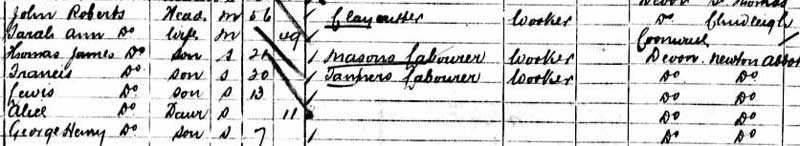 John Roberts Head M 56 Claycutter Worker Do Chudleigh
Sarah Ann Do Wife M 49 Cornwall
Thomas James Do Son S 21 Masons Labourer Worker Devon Newton Abbot
Francis Do Son S 20 Tanners Labourer Worker Do Do
Lewis Do Son S 13 Do Do
Alice Do Daur S 11 Do Do
George Henry Do Son S 7 Do Do